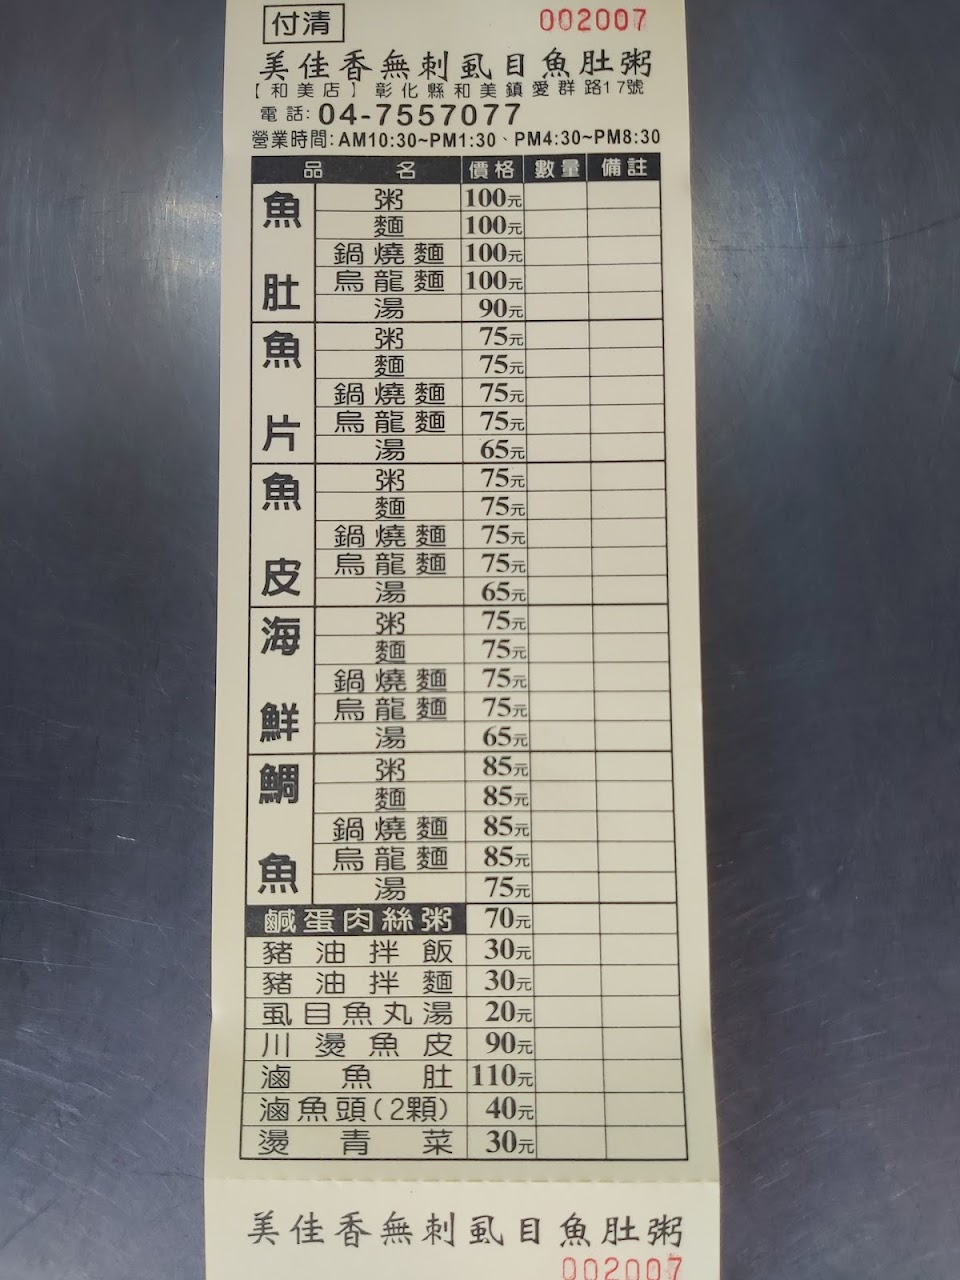 付清 002007
美佳香無刺虱目魚肚粥
【和美店】彰化縣和美鎮愛群路17號
電話:04-7557077
營業時間:AM10:30~PM1:30、PM4:30~PM8:30
品名 價格 數量 備註
魚肚
粥 100元
麵 100元
鍋燒麵 100元
烏龍麵 100元
湯 90元
魚片
粥 75元
麵 75元
鍋燒麵 75元
烏龍麵 75元
湯 65元
魚皮
粥 75元
麵 75元
鍋燒麵 75元
烏龍麵 75元
湯 65元
海鮮
粥 75元
麵 75元
鍋燒麵 75元
烏龍麵 75元
湯 65元
鯛魚
粥 85元
麵 85元
鍋燒麵 85元
烏龍麵 85元
湯 75元
鹹蛋肉絲粥 70元
豬油拌飯 30元
豬油拌麵 30元
虱目魚丸湯 20元
川燙魚皮 90元
滷魚肚 110元
滷魚頭(2顆) 40元
燙青菜 30元
美佳香無刺虱目魚肚粥
002007